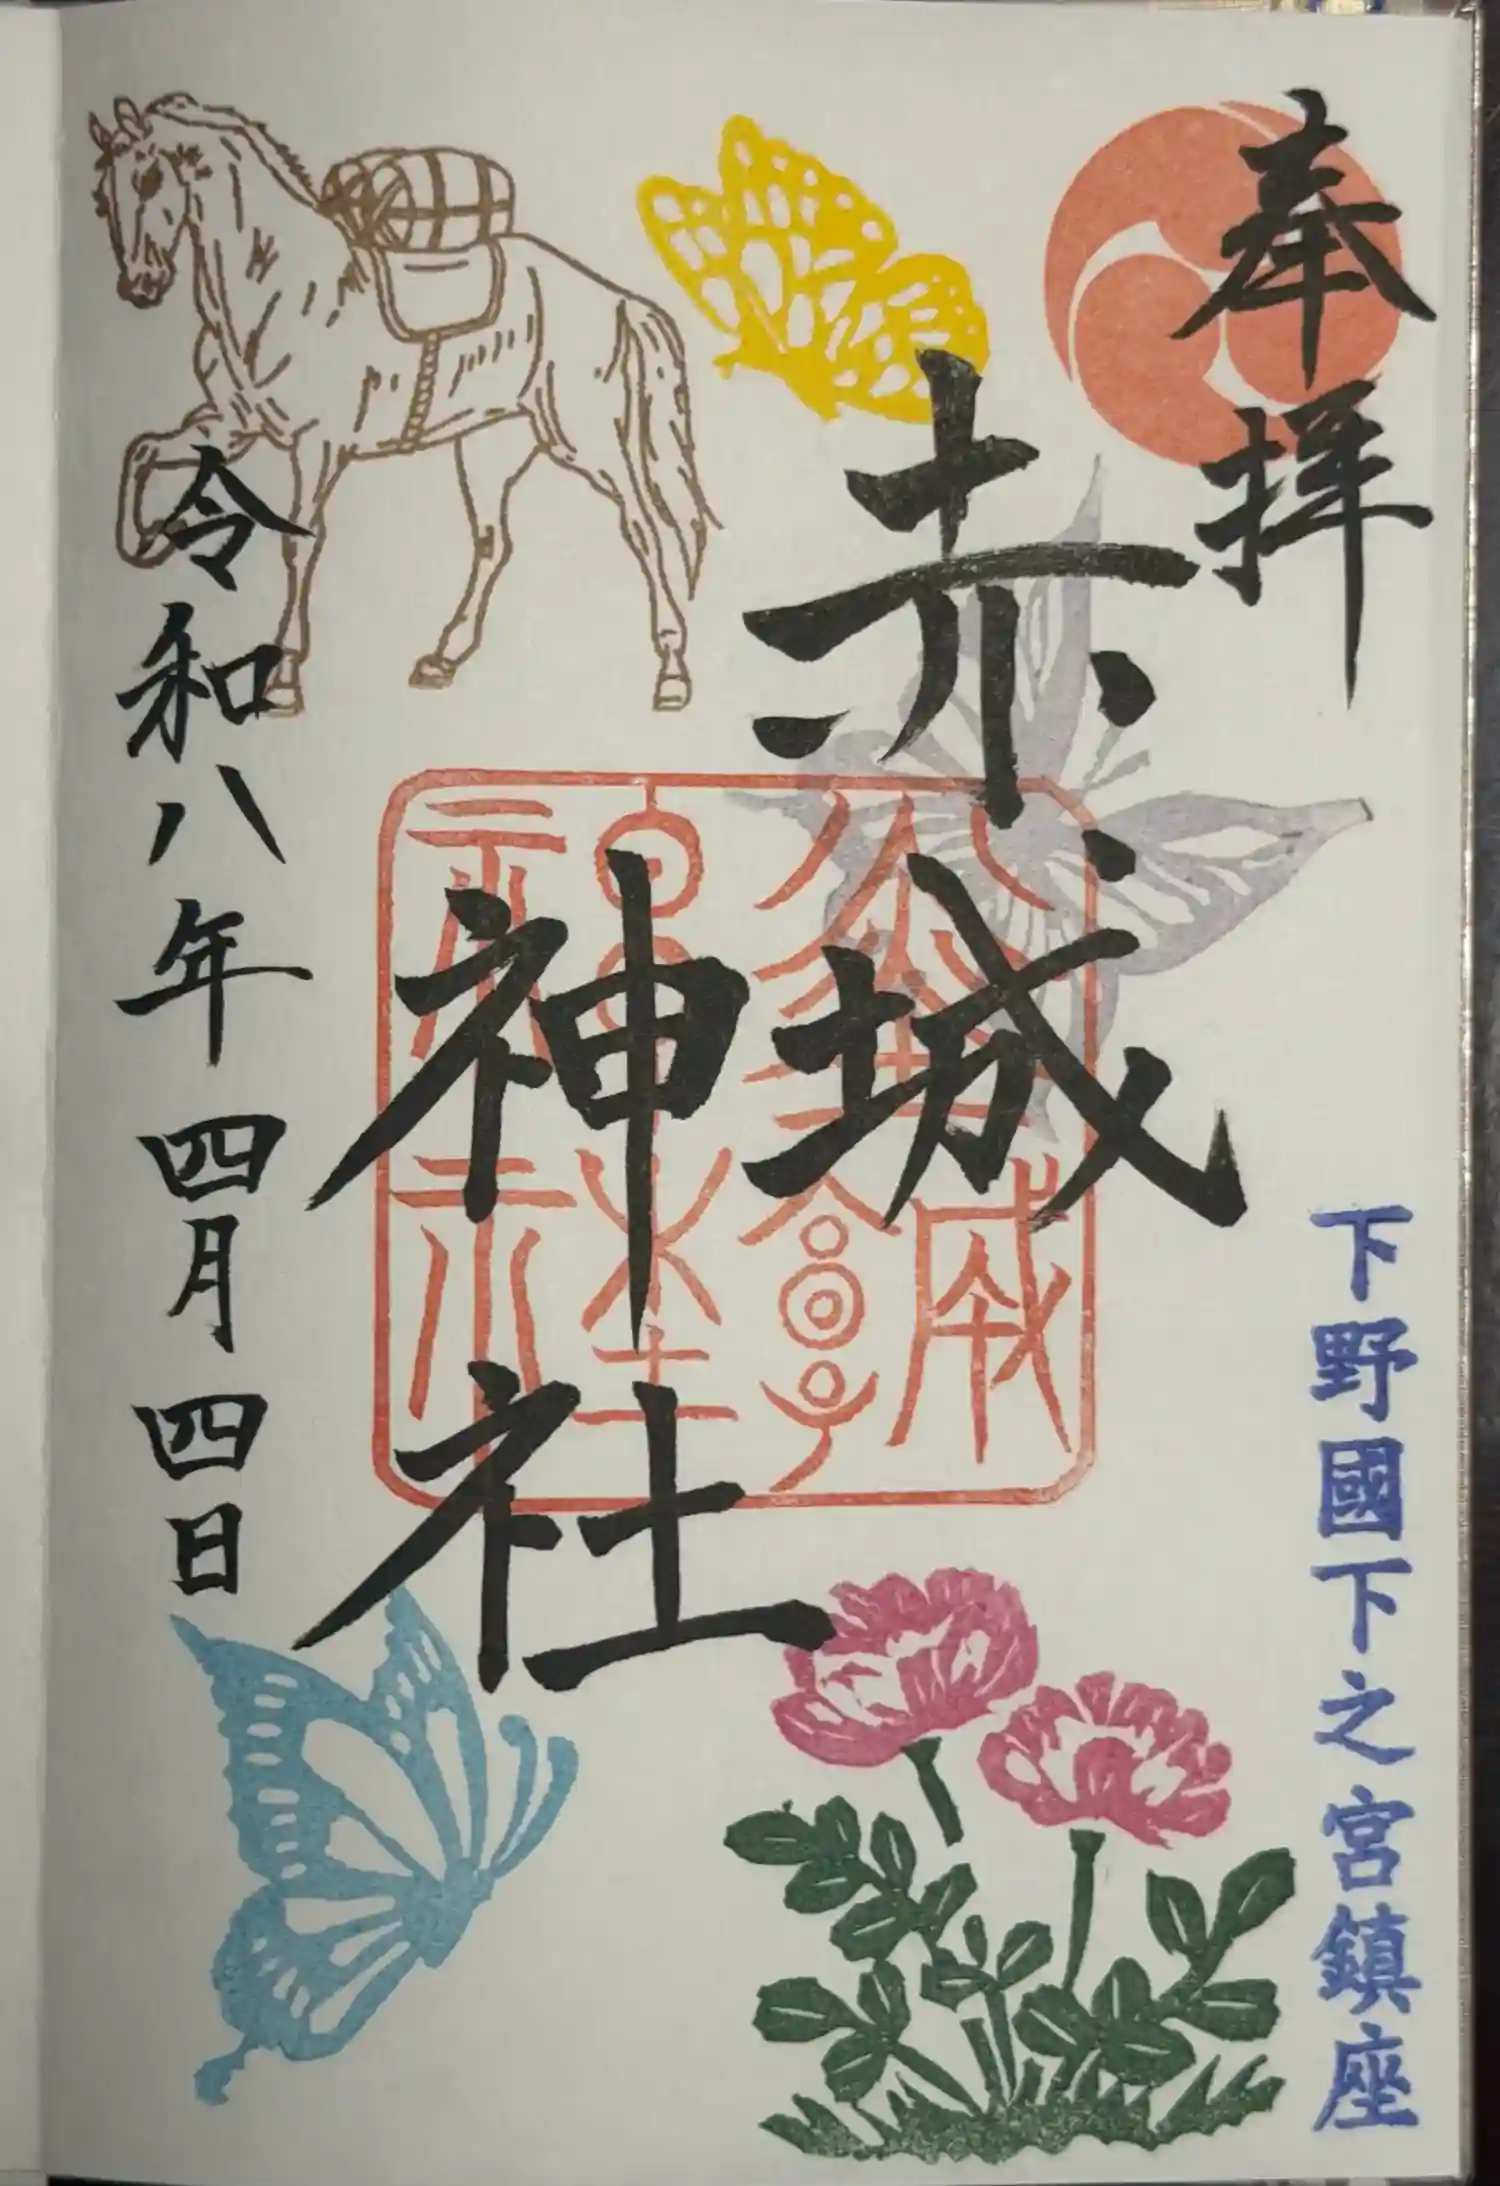 奉拝
下野國下之宮鎮座
赤城
神社
令和八年四月四日